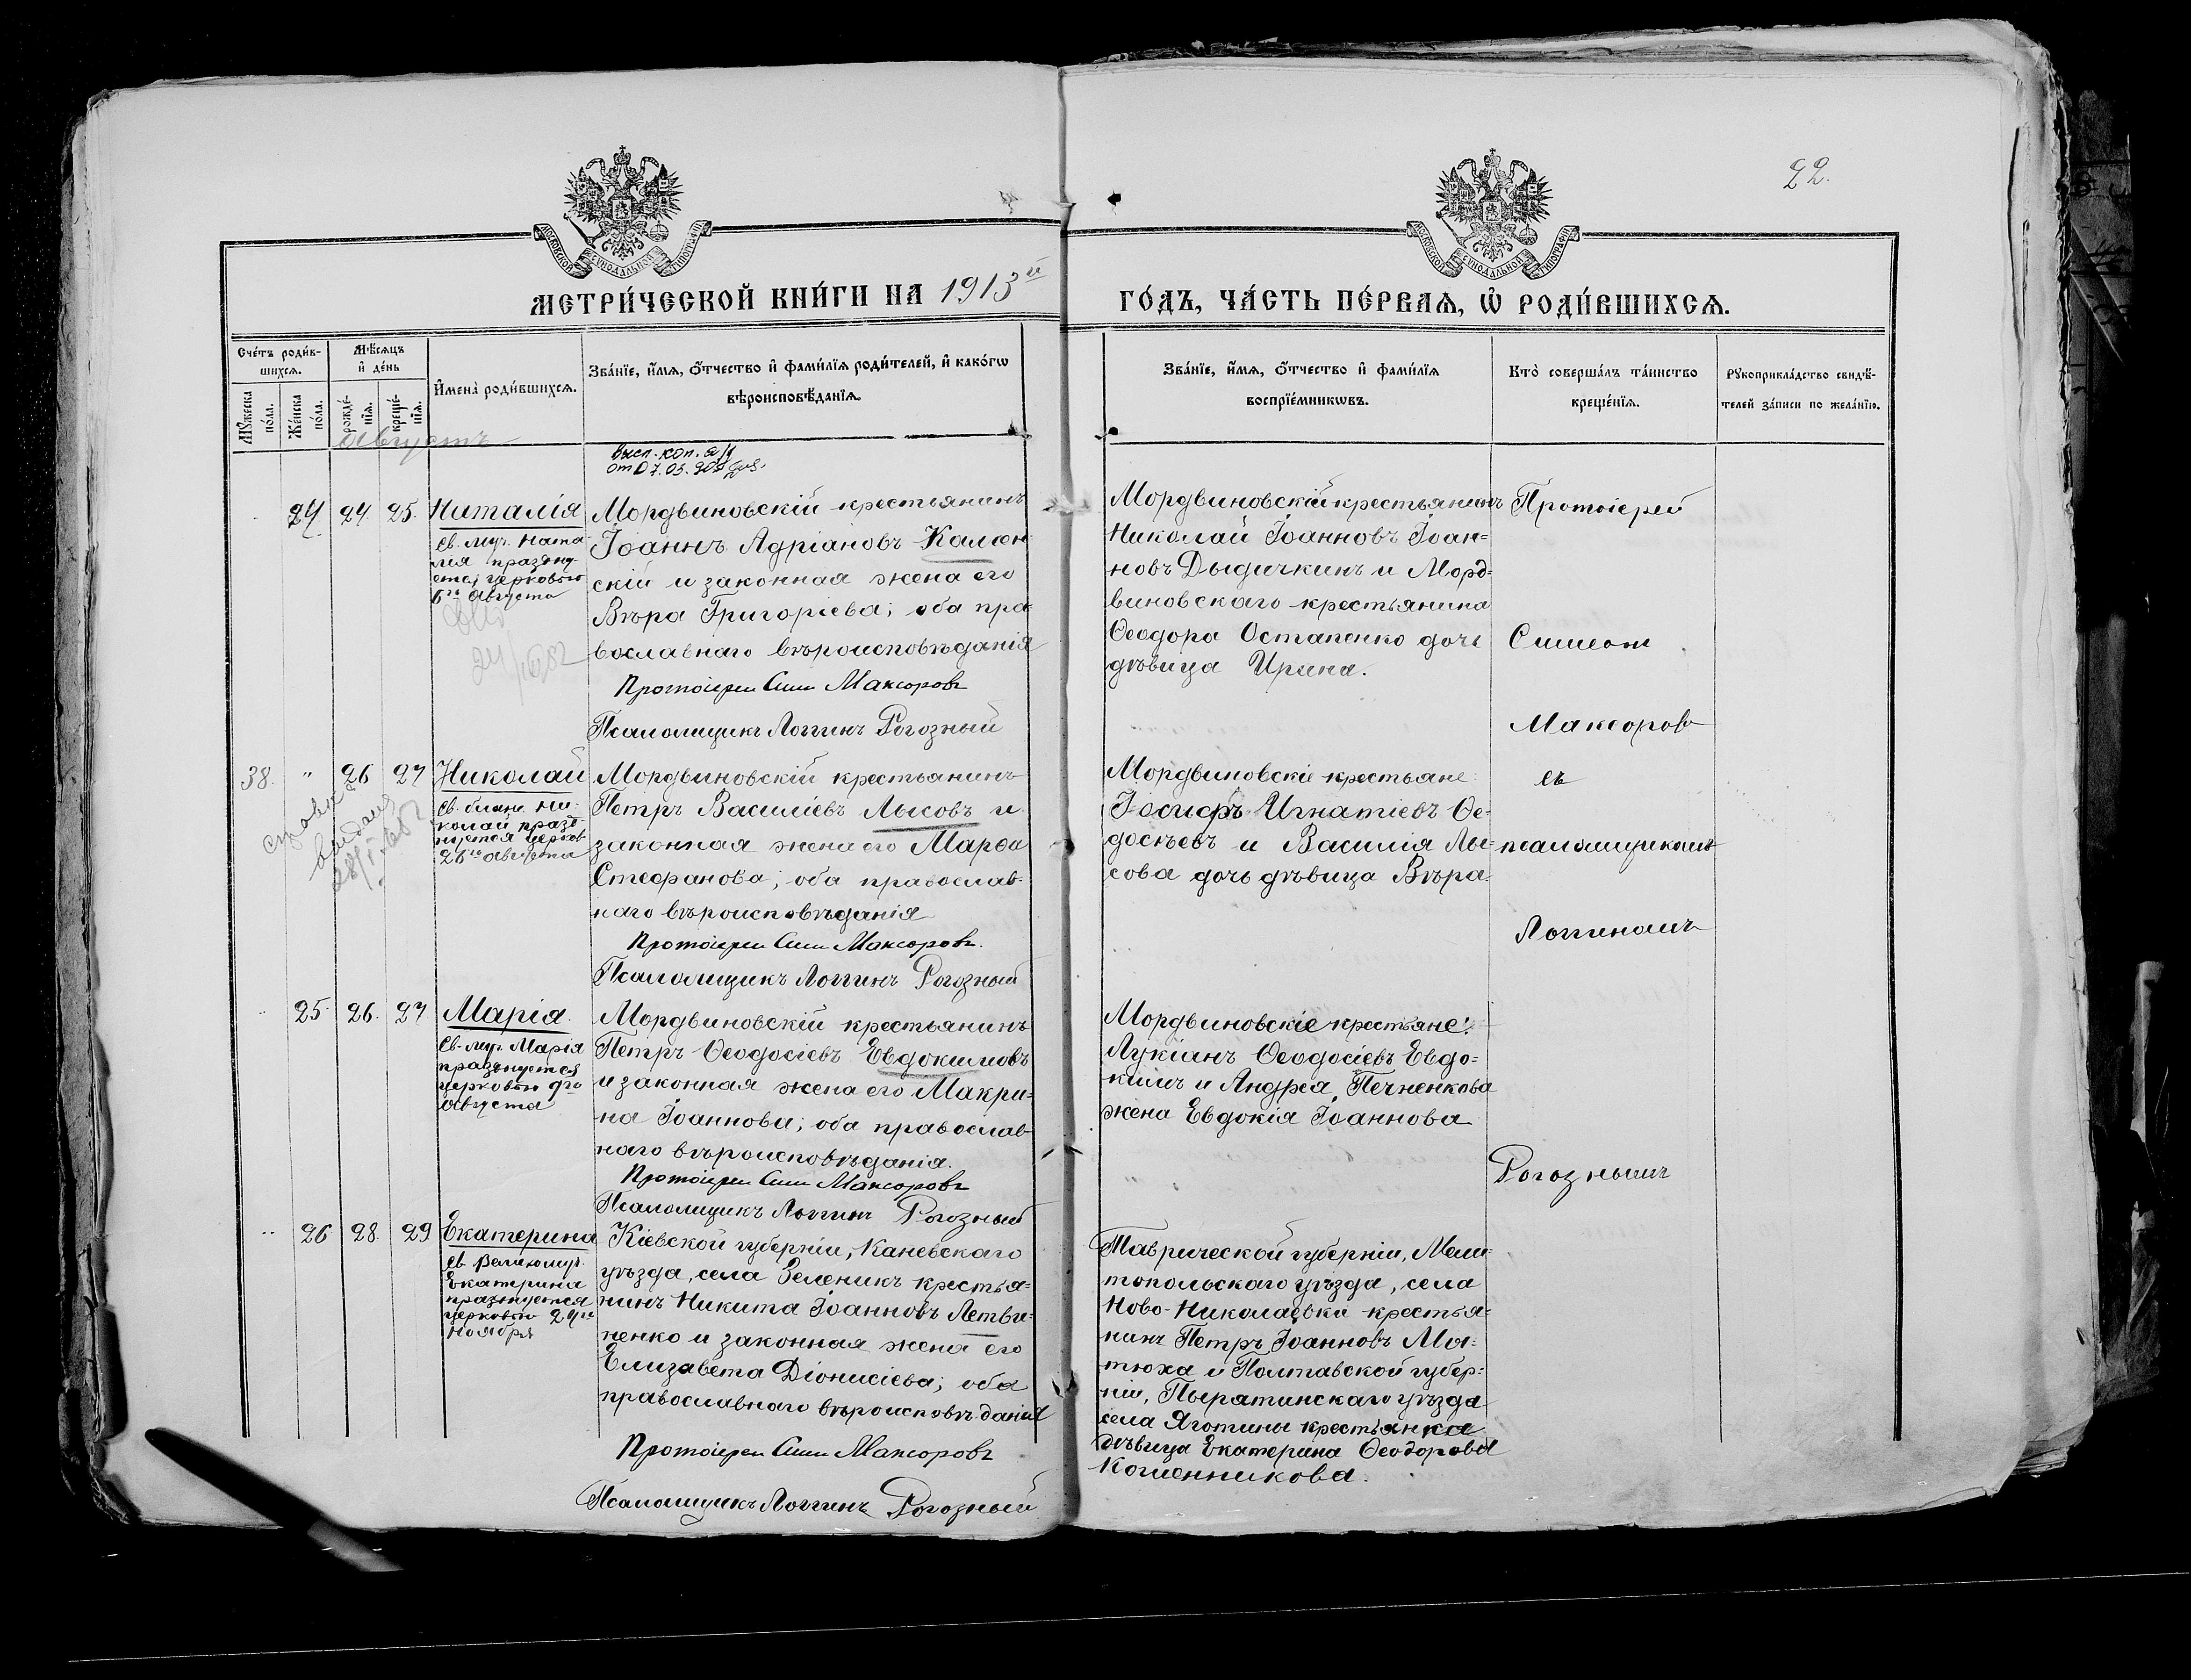 22.
МОСКОВСКОЙ СѴНОДАЛЬНОЙ ТИПОГРАФІИ
МОСКОВСКОЙ СѴНОДАЛЬНОЙ ТИПОГРАФІИ
МЕТРИ́ЧЕСКОЙ КНИ́ГИ НА 1913й
ГО́ДЪ, ЧА́СТЬ ПЕ́РВАѦ, Ѡ҆ РОДИ́ВШИХСѦ.
Сче́тъ роди́в-
шихсѧ.
Мꙋ́жеска по́ла.
Же́нска по́ла.
Мѣ́сѧцъ
и҆ де́нь
рожде́-нїѧ.
креще́-нїѧ.
И҆мена̀ роди́вшихсѧ.
Зва́нїе, и҆́мѧ, ѻ҆́тчество и҆ фами́лїѧ роди́телей, и҆ како́гѡ
вѣроисповѣ́данїѧ.
Зва́нїе, и҆́мѧ, ѻ҆́тчество и҆ фами́лїѧ
воспрїе́мникѡвъ.
Кто̀ соверша́лъ та́инство
креще́нїѧ.
Рꙋкоприкла́дство свидѣ́-
телей за́писи по жела́нїю.
Августъ
24 24 25. Наталія
Св. муч. Ната
лія праздну-
ется церковью
Мордвиновскій крестьянинъ
Іоаннъ Адріановъ Калан
скій и законная жена его
Вѣра Григоріева; оба пра
вославнаго вѣроисповѣданія
Протоіерей Сим Максоровъ
Псаломщикъ Логгинъ Рогозный
Мордвиновскій крестьянинъ
Николай Іоанновъ Іоан=
новъ Дыдичкинъ и Морд=
виновскаго крестьянина
Ѳеодора Остапенко дочь
дѣвица Ирина.
38. " 26 27 Николай
Св. блаж. Ни-
колай празд
нуется церков
26го августа
справка
выдана
Мордвиновскій крестьянинъ
Петръ Василіевъ Лысовъ и
законная жена его Марѳа
Стефанова; оба православ-
наго вѣроисповѣданія
Протоіерей Сим Максоровъ.
Псаломщикъ Логгинъ Рогозный
Мордвиновскіе крестьяне:
Іосифъ Игнатіевъ Ѳе-
досѣевъ и Василія Лы-
сова дочь дѣвица Вѣра.
25 26. 27 Марія.
Св. муч. Марія
празднуется
церковью 9го
августа
Мордвиновскій крестьянинъ
Петръ Ѳеодосіевъ Евдокимовъ
и законная жена его Макри=
на Іоаннова; оба православ-
наго вѣроисповѣданія.
Протоіерей Сим Максоровъ
Псаломщикъ Логгинъ Рогозный
Мордвиновскіе крестьяне:
Лукіанъ Ѳеодосіевъ Евдо=
кимъ и Андрея Печненкова
жена Евдокія Іоаннова
26 28. 29 Екатерина
Св Великомуч.
Екатерина
празднуется
церковью 24го
ноября
Кіевской губерніи, Каневскаго
уѣзда, села Зеленикъ крестья=
нинъ Никита Іоанновъ Летви=
ненко и законная жена его
Елизавета Діонисіева; оба
православнаго вѣроисповѣданія
Протоіерей Сим Максоровъ
Псаломщикъ Логгинъ Рогозный
Таврической губерніи, Мели=
топольскаго уѣзда, села
Ново-Николаевки крестья=
нинъ Петръ Іоанновъ Ма=
тюха и Полтавской губер=
ніи, Пырятинскаго уѣзда
села Яготина крестьянка
дѣвица Екатерина Ѳеодорова
Протоіерей
Симеон
Максоров
съ
псаломщикомъ
Логгиномъ
Рогознымъ